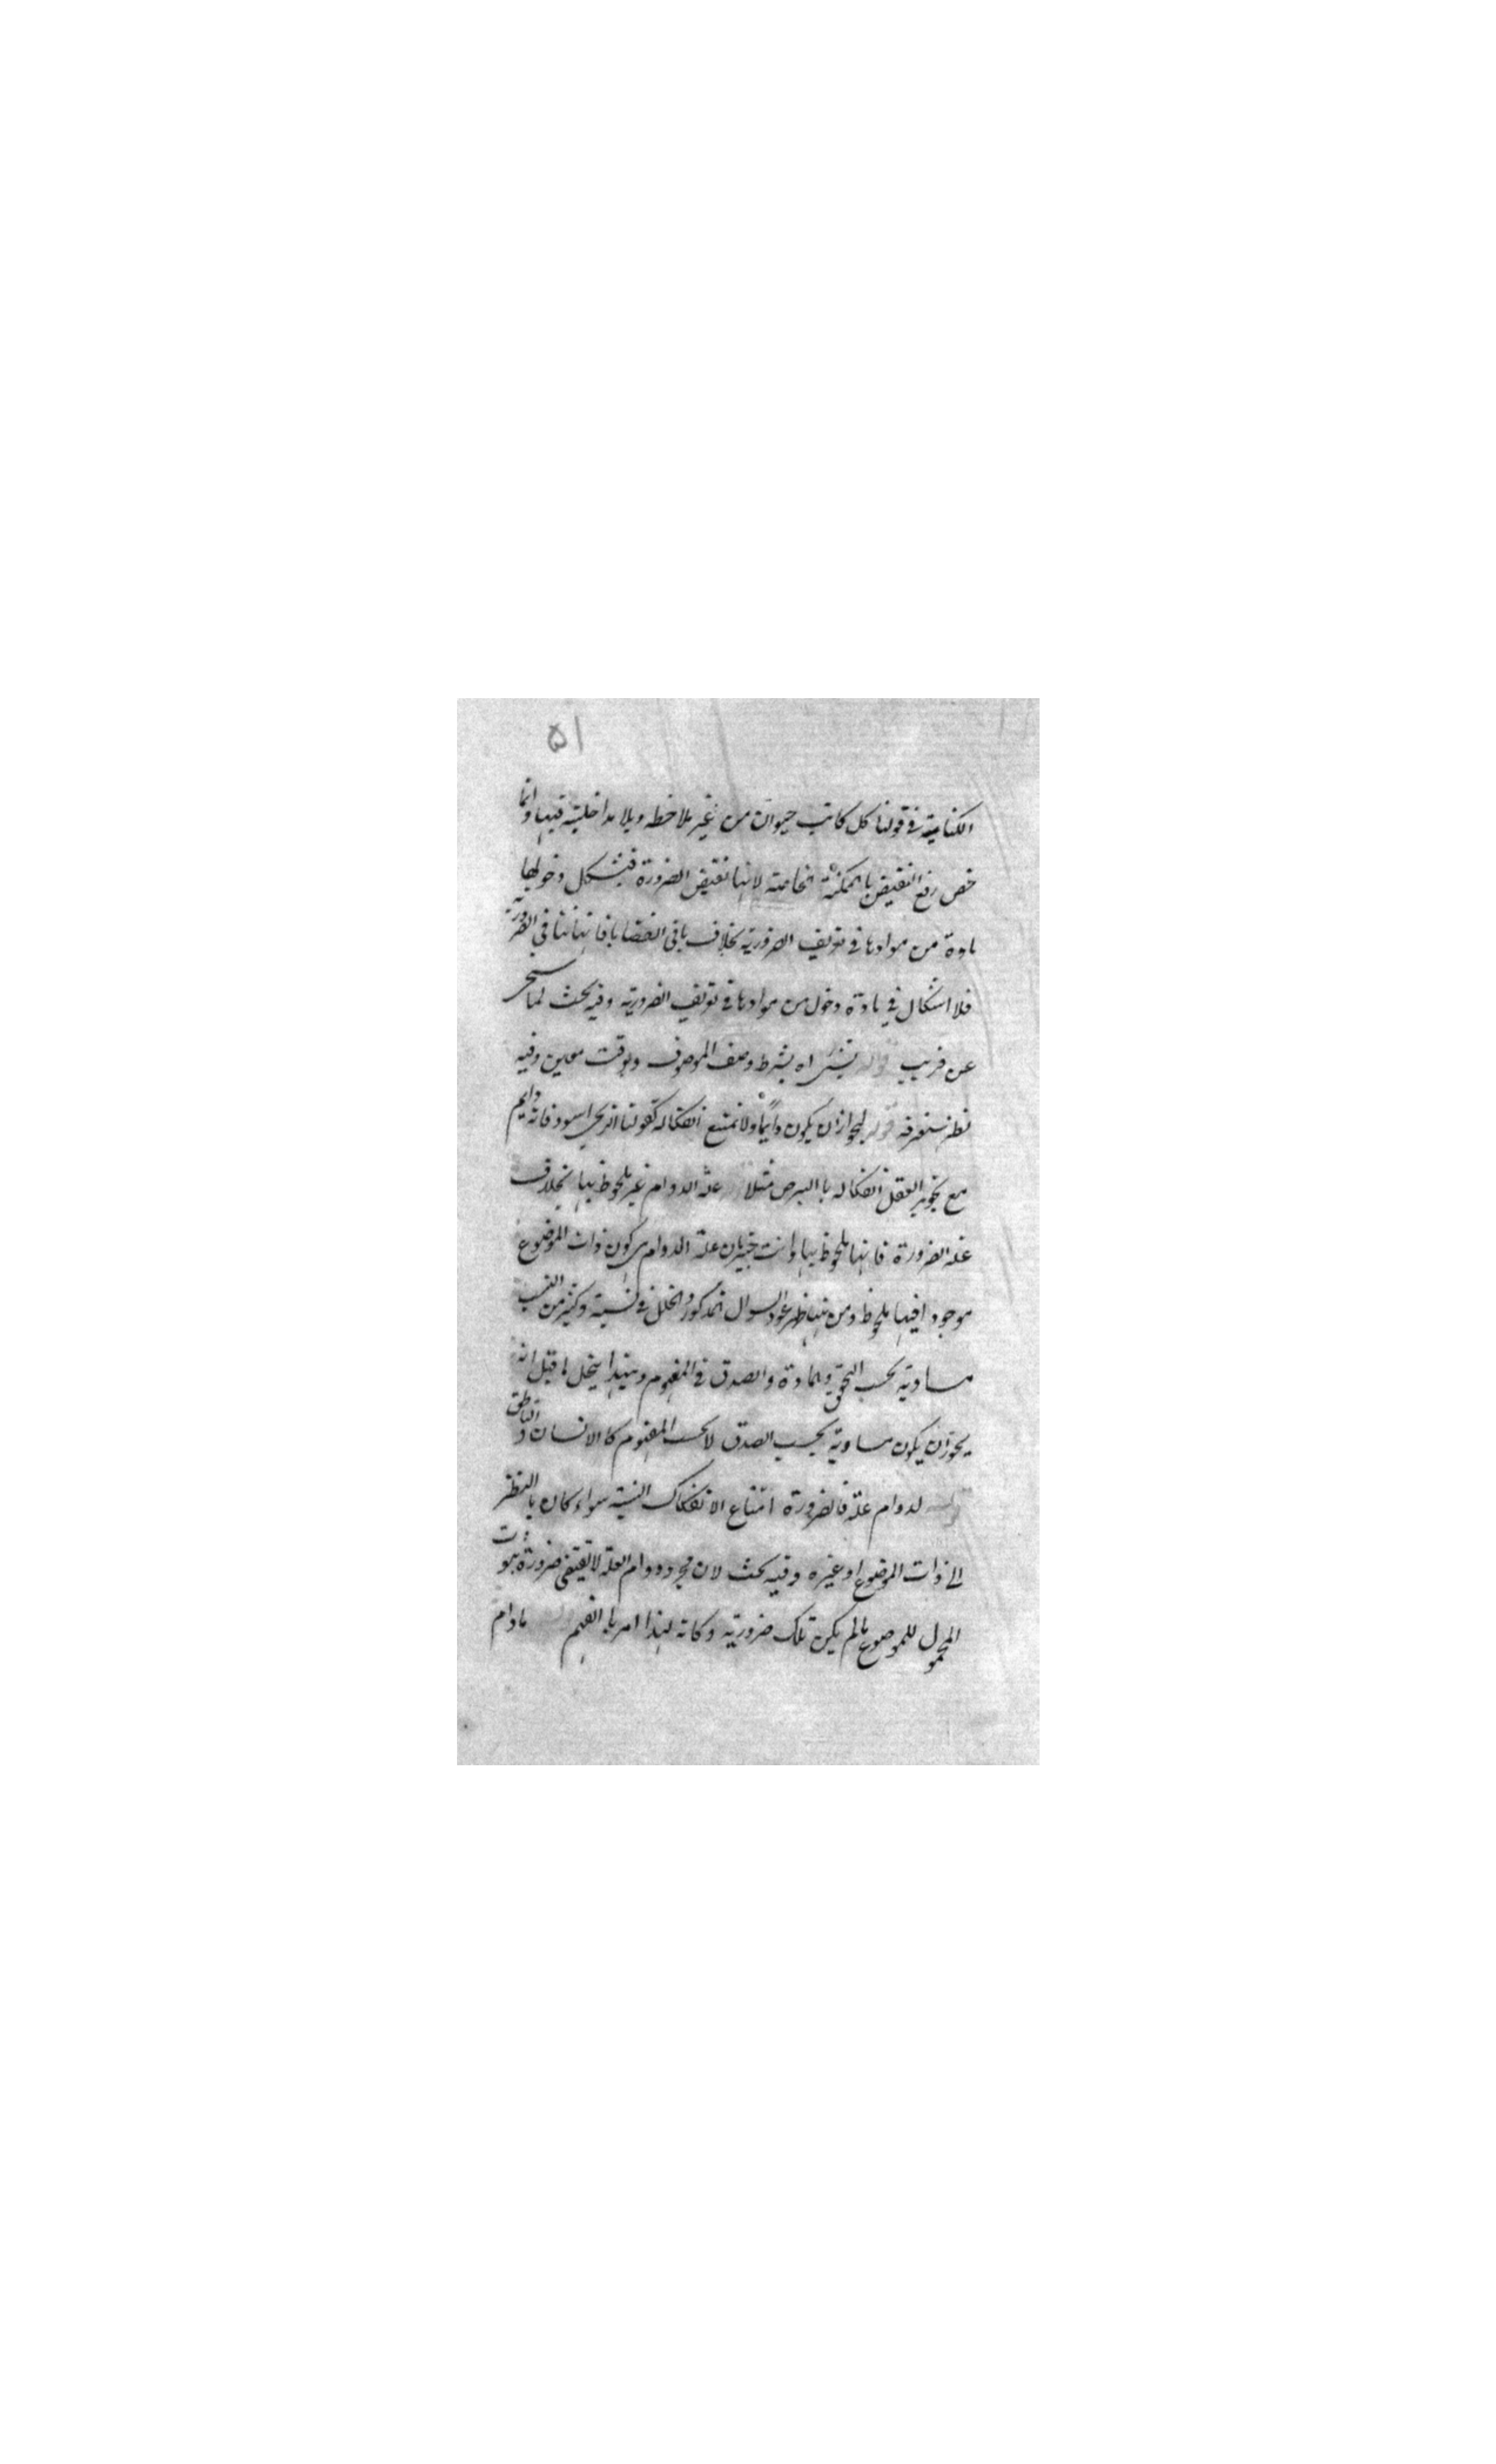 ۵۱
الكتابة في قولنا كل كاتب حيوان من غير ملاحظه وبلا مداخلية فيها وانما
خص رفع النقيض بالممكنة العامة لانها نقيض الضرورة فيشكل دخولها
مادة من موادها في تعريف الضرورية بخلاف باقي القضايا فانها
فلا اشكال في مادة دخول من موادها في تعريف الضرورية وفيه بحث لما سيجئ
عن قريب قوله بشرط وصف الموصوف وبوقت معين وفيه
نظر ستعرفه قوله لجواز ان يكون دائما ولا تمتنع انفكاكه كقولنا الزنجي اسود فانه دايم
مع تجويز العقل انفكاكه با البرص مثلا علة الدوام غير ملحوظ بها بخلاف
علة الضرورة فانها ملحوظ بها وانت خبير بان علة الدوام كون ذات الموضوع
موجودا فيها ملحوظ ومن هنا ظهر عود السوال المذكور والخلل في نسبة وكثير من النسب
مساوية بحسب التحقق والمادة والصدق في المفهوم وبهذا ينحل ما قيل انه
يجوز ان يكون مساوية بحسب الصدق لا بحسب المفهوم كا الانسان والناطق
قوله لدوام علة فالضرورة امتناع الانفكاك النسبة سواء كان بالنظر
الى ذات الموضوع او غيره وفيه بحث لان مجرد دوام العلة لا يقتضى ضرورة ثبوت
المحمول للموضوع مالم يكن تلك ضرورية وكانه لهذا امر با الفهم مادام